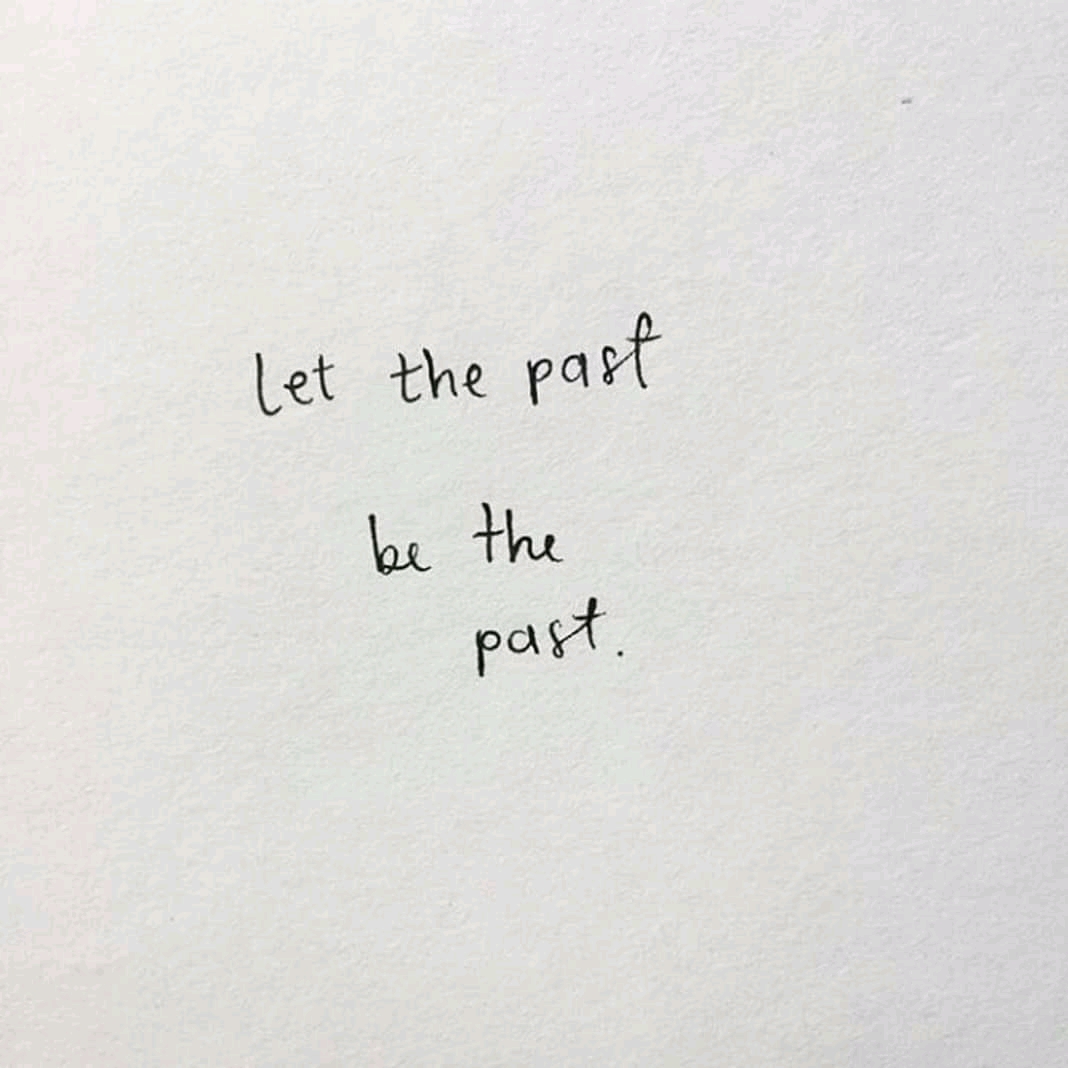 let the past
be the
past.